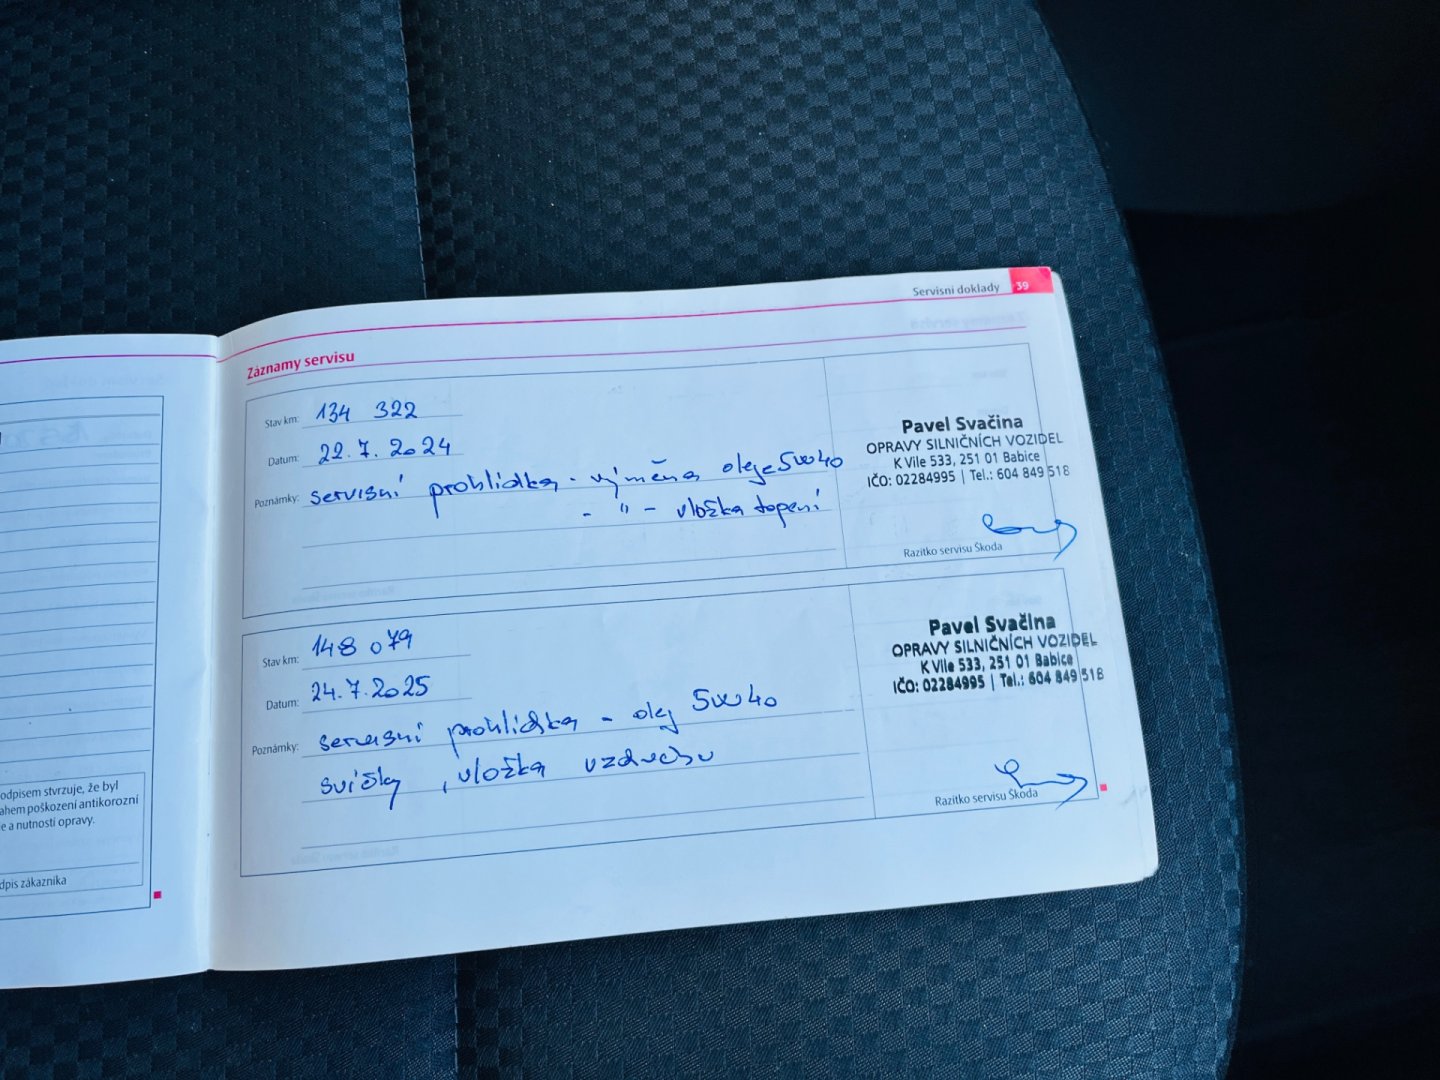 Servisní doklady 39
Záznamy servisu
Stav km: 134 322
Datum: 22.7.2024
Poznámky: servisní prohlídka - výměna oleje 5W40
- " - vložka topení
Pavel Svačina
OPRAVY SILNIČNÍCH VOZIDEL
K Vile 533, 251 01 Babice
IČO: 02284995 | Tel.: 604 849 518
Razítko servisu Škoda
Stav km: 148 079
Datum: 24.7.2025
Poznámky: servisní prohlídka - olej 5W40
svíčky, vložka vzduchu
Pavel Svačina
OPRAVY SILNIČNÍCH VOZIDEL
K Vile 533, 251 01 Babice
IČO: 02284995 | Tel.: 604 849 518
Razítko servisu Škoda
odpisem stvrzuje, že byl
ahem poškození antikorozní
e a nutností opravy.
dpis zákazníka